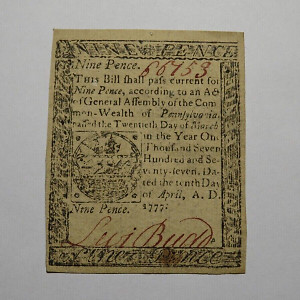 NINE PENCE
Nine Pence. 66753
THIS Bill shall pass current for
Nine Pence, according to an Act
of General Assembly of the Com
mon-Wealth of Pennsylvania,
passed the Twentieth Day of March
in the Year One
Thousand Seven
Hundred and Se-
venty-seven. Da-
ted the tenth Day
of April, A. D.
1777.
Nine Pence.
Levi Budd
Nine Pence